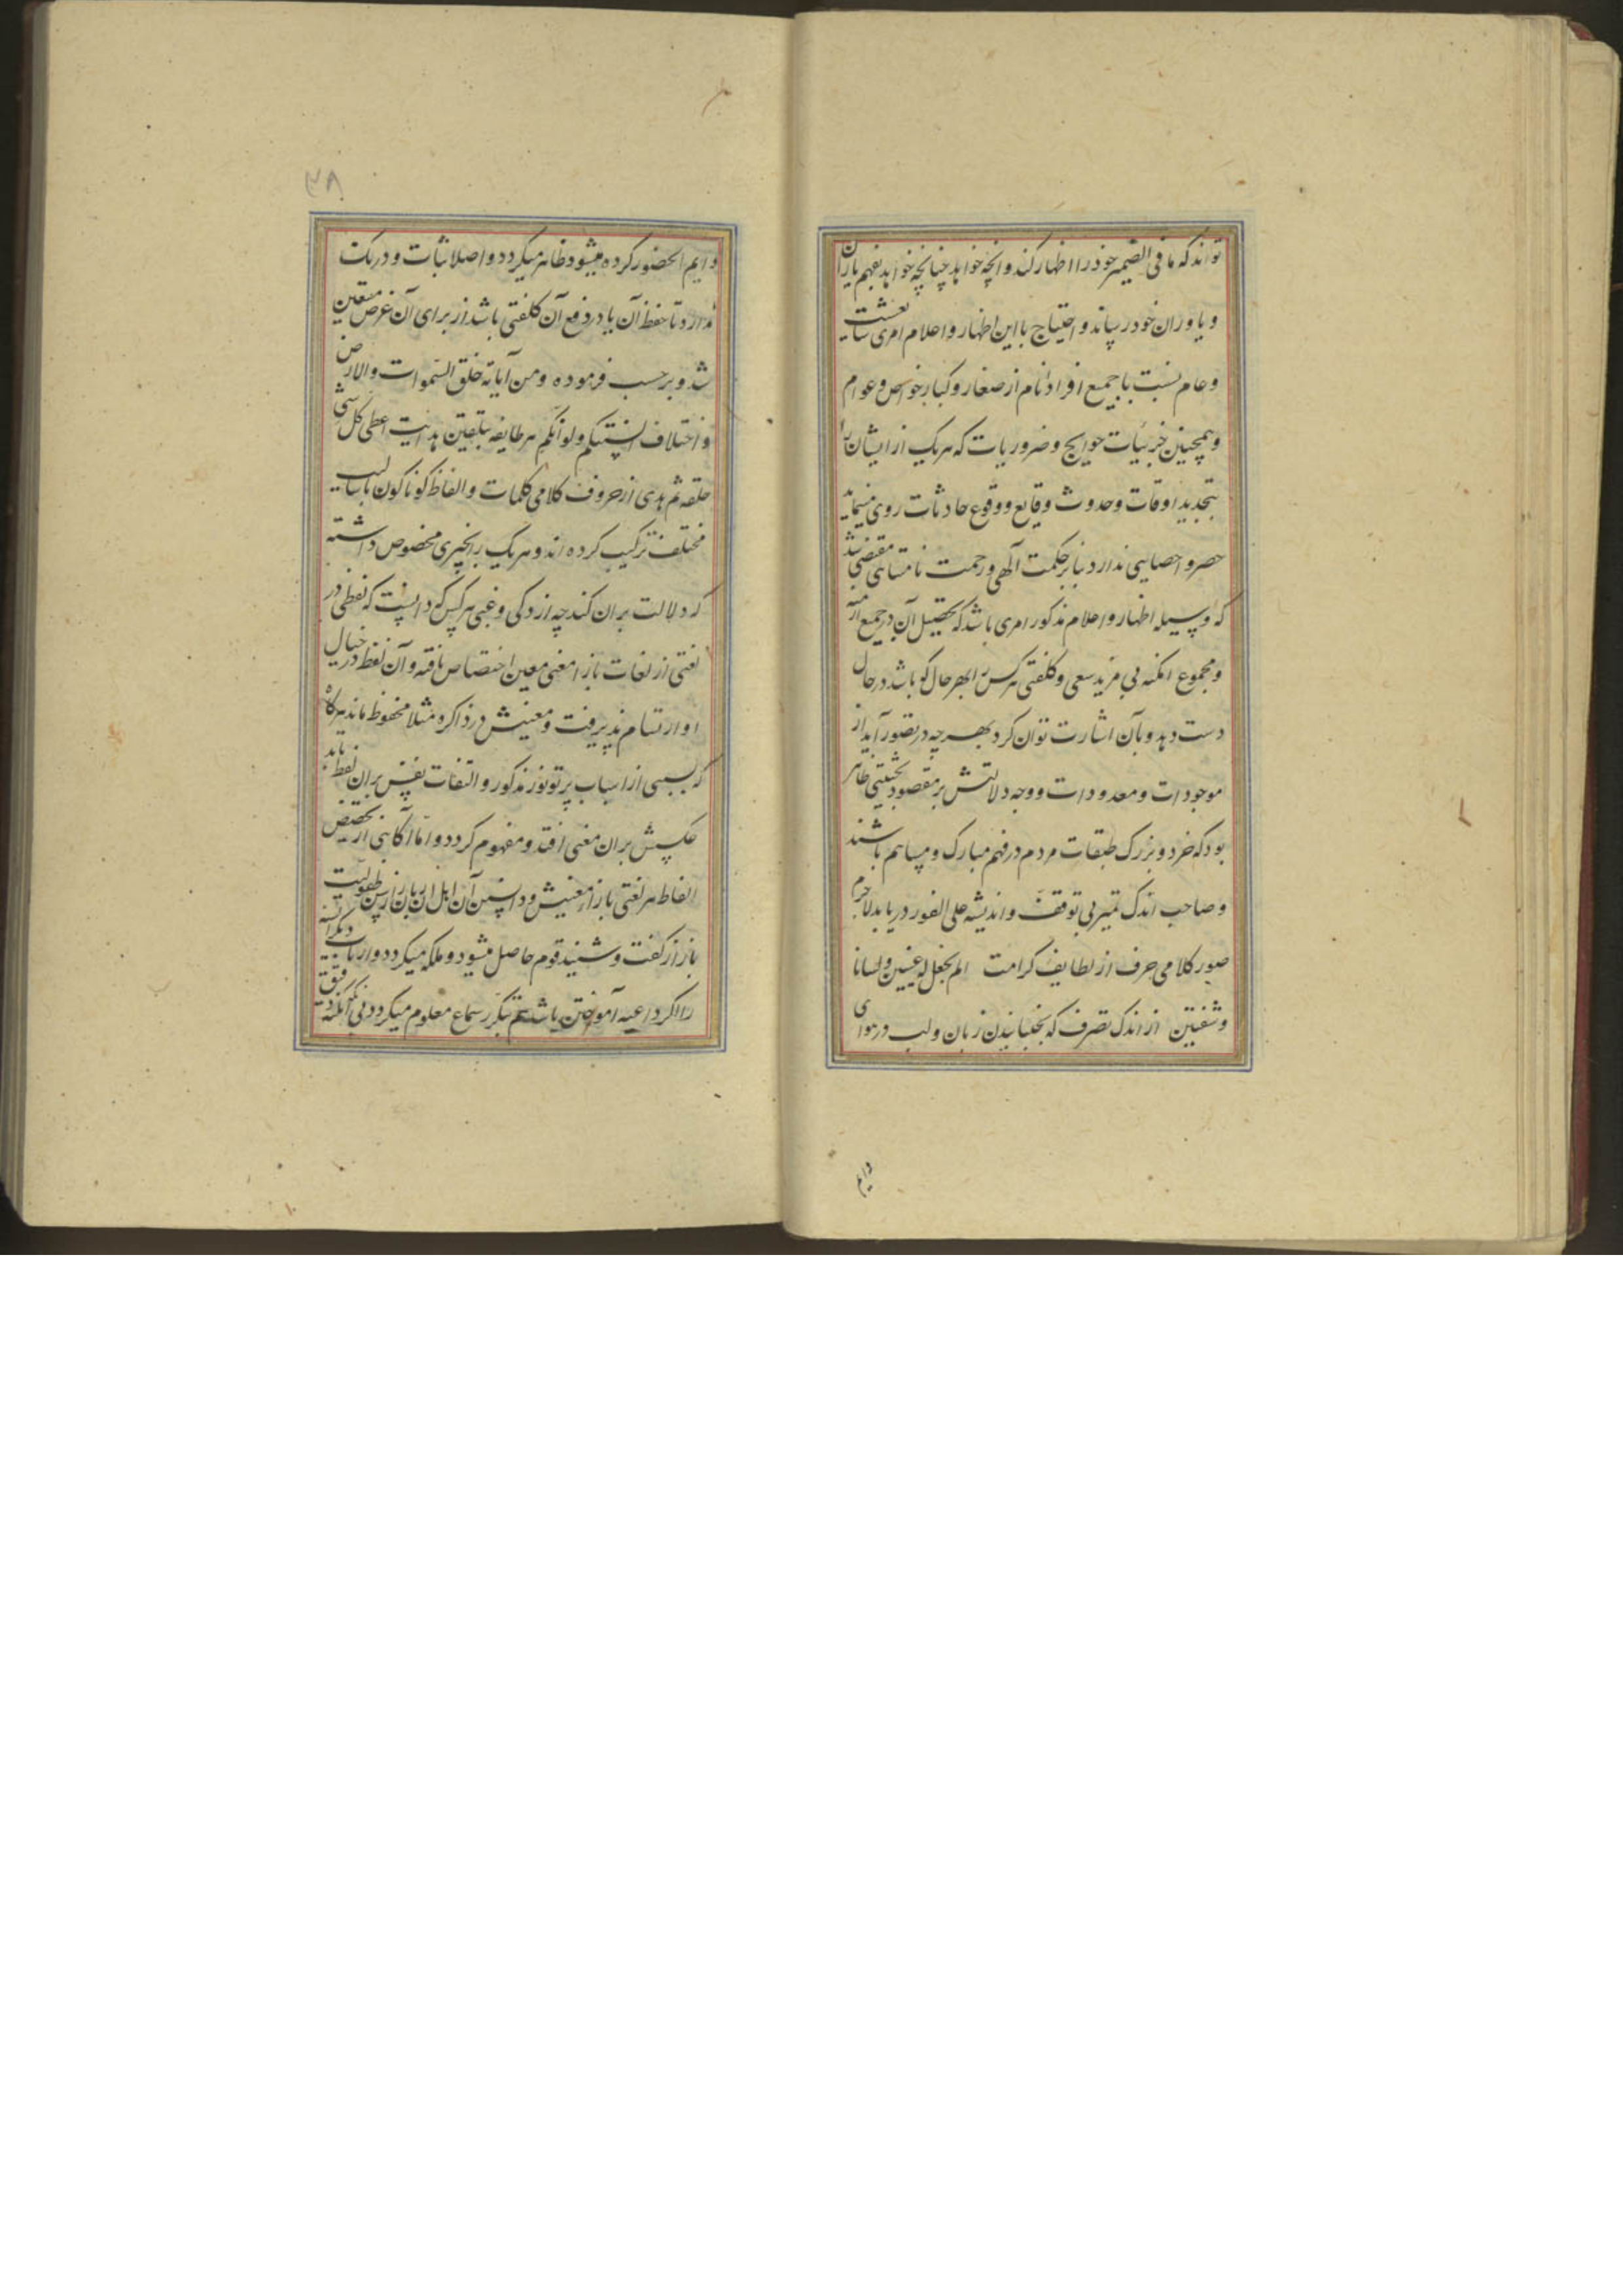 تواند که ما فی الضمیر خود را اظهار کند و انچه خواهد چنانچه خواهد بفهم یاران
و یاوران خود رساند و احتیاج باین اظهار و اعلام امری شایعست
و عام نسبت با جمیع افراد انام از صغار و کبار و خواص و عوام
و همچنین جزئیات حوایج و ضروریات که هر یک از ایشان را
بتجدید اوقات و حدوث وقایع و وقوع حادثات روی مینماید
حصر و احصایی ندارد بنابر حکمت الهی و رحمت نامتناهی مقتضی شد
که وسیله اظهار و اعلام مذکور امری باشد که تحصیل آن در جمیع ازمنه
و مجموع امکنه بی مزید سعی و کلفتی هر کس را بهر حال کو باشد در حال
دست دهد و بآن اشارت توان کرد بهر چه در تصور آید از
موجودات و معدودات و وجه دلالتش بر مقصود بحیثیتی ظاهر
بود که خرد و بزرک طبقات مردم در فهم مبارک و مساهم باشند
و صاحب اندک تمیز بی توقف و اندیشه علی الفور دریابد لاجرم
صور کلامی حرف از لطایف کرامت الم نجعل له عینین و لسانا
و شفتین از اندک تصرف که بجنبانیدن زبان و لب در هوای
دایم
۳۸
دایم الحضور کرده میشود ظاهر میکردد و اصلا ثبات و درنک
ندارد تا حفظ آن یا در دفع آن کلفتی باشد از برای آن غرض متعین
شد و بر حسب فرموده و من آیاته خلق السموات والارض
و اختلاف السنتکم و الوانکم هر طایفه بتلقین هدایت اعطی کل شی
خلقه ثم هدی از حروف کلامی کلمات و الفاظ کوناکون باسالیب
مختلف ترکیب کرده اند و هر یک را بچیزی مخصوص داشته
که دلالت بران کند چه از ذکی و غبی هر کس که دانست که لفظی در
لغتی از لغات بازا معنی معین اختصاص یافته و آن لفظ در خیال
او ارتسام پذیرفت و معنیش در ذاکره مثلا محفوظ ماند هرکاه
که بسببی از اسباب پرتو نور مذکور و التفات نفس بران لفظ تابد
عکسش بران معنی افتد و مفهوم کردد و اما آکاهی از تخصیص
الفاظ هر لغتی بازاء معنیش و دانستن آن اهل آن زبان را از سن طفولیت
باز از کفت و شنید قوم حاصل میشود و ملکه میکردد و ارباب دیگر السنه
را اگر داعیه آموختن باشد هم بتکرر سماع معلوم میکردد بی آنکه